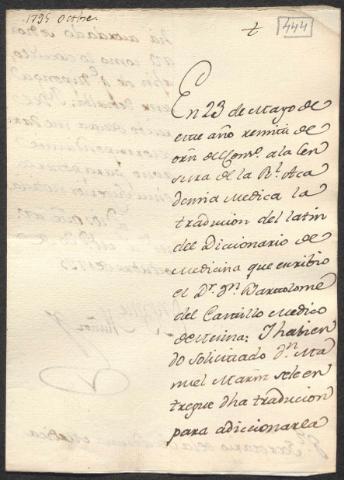 1795 Octbre.
t
444
En 23 de Mayo de
este año remiti de
orn del Cons.º a la Cen
sura de la R.l Aca
demia Medica la
traducion del latin
del Diccionario de
Medicina que escribio
el D.r D.n Bartolome
del Castillo Medico
de Reina: I habien
do solicitado D.n Ma
nuel Marin se le en
tregue dha traducion
para adiccionarla
S.r Secretario de la